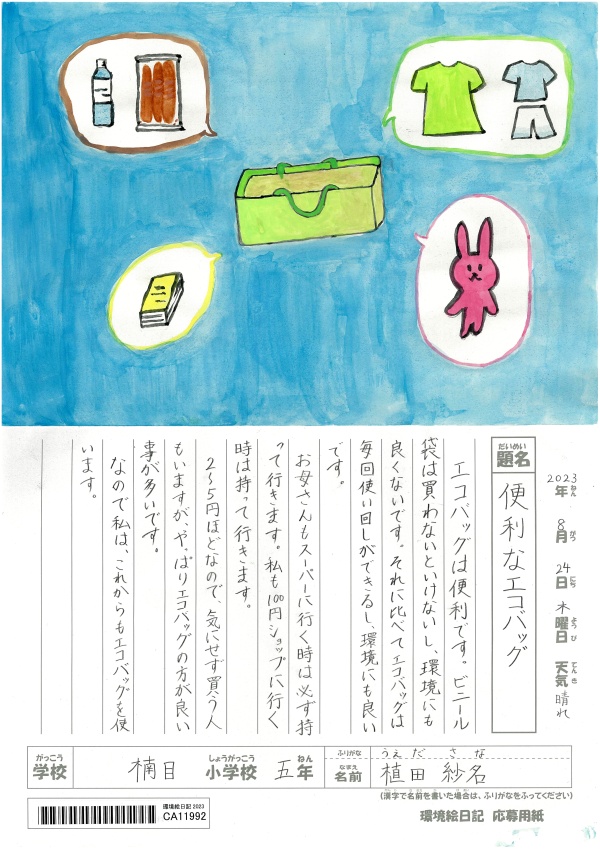 2023年ねん 8月がつ 24日にち 木曜日ようび 天気てんき 晴れ
題名だいめい 便利なエコバッグ
エコバッグは便利です。ビニール
袋は買わないといけないし、環境にも
良くないです。それに比べてエコバッグは
毎回使い回しができるし、環境にも良い
です。
お母さんもスーパーに行く時は必ず持
って行きます。私も100円ショップに行く
時は持って行きます。
2～5円ほどなので、気にせず買う人
もいますが、やっぱりエコバッグの方が良い
事が多いです。
なので私は、これからもエコバッグを使
います。
がっこう しょうがっこう ねん
学校 楠目 小学校 五年
ふりがな うえだ さな
なまえ
名前 植田 紗名
(漢字で名前を書いた場合は、ふりがなをふってください)
環境絵日記 応募用紙
環境絵日記 2023
CA11992